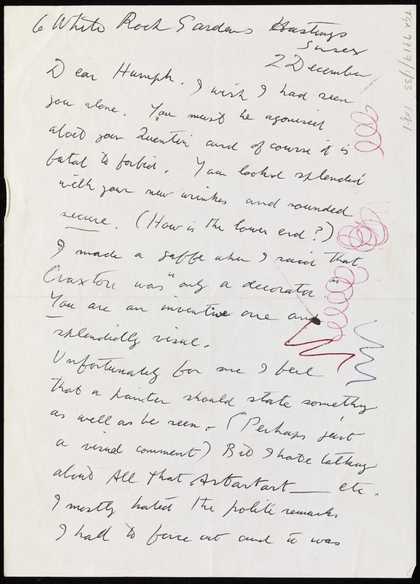 6 White Rock Gardens Hastings
Sussex
2 December
Dear Humph. I wish I had seen
you alone. You must be agonised
about your Quentin and of course it is
fatal to forbid. You looked splendid
with your new wrinkles and sounded
secure. (How is the lower end?)
I made a gaffe when I said that
Craxton was "only a decorator"
You are an inventive one and
splendidly visual.
Unfortunately for me I feel
that a painter should state something
as well as be seen. (Perhaps just
a visual comment) But I hate talking
about All That Artartart — etc.
I mostly hated the polite remarks
I had to force out and it was